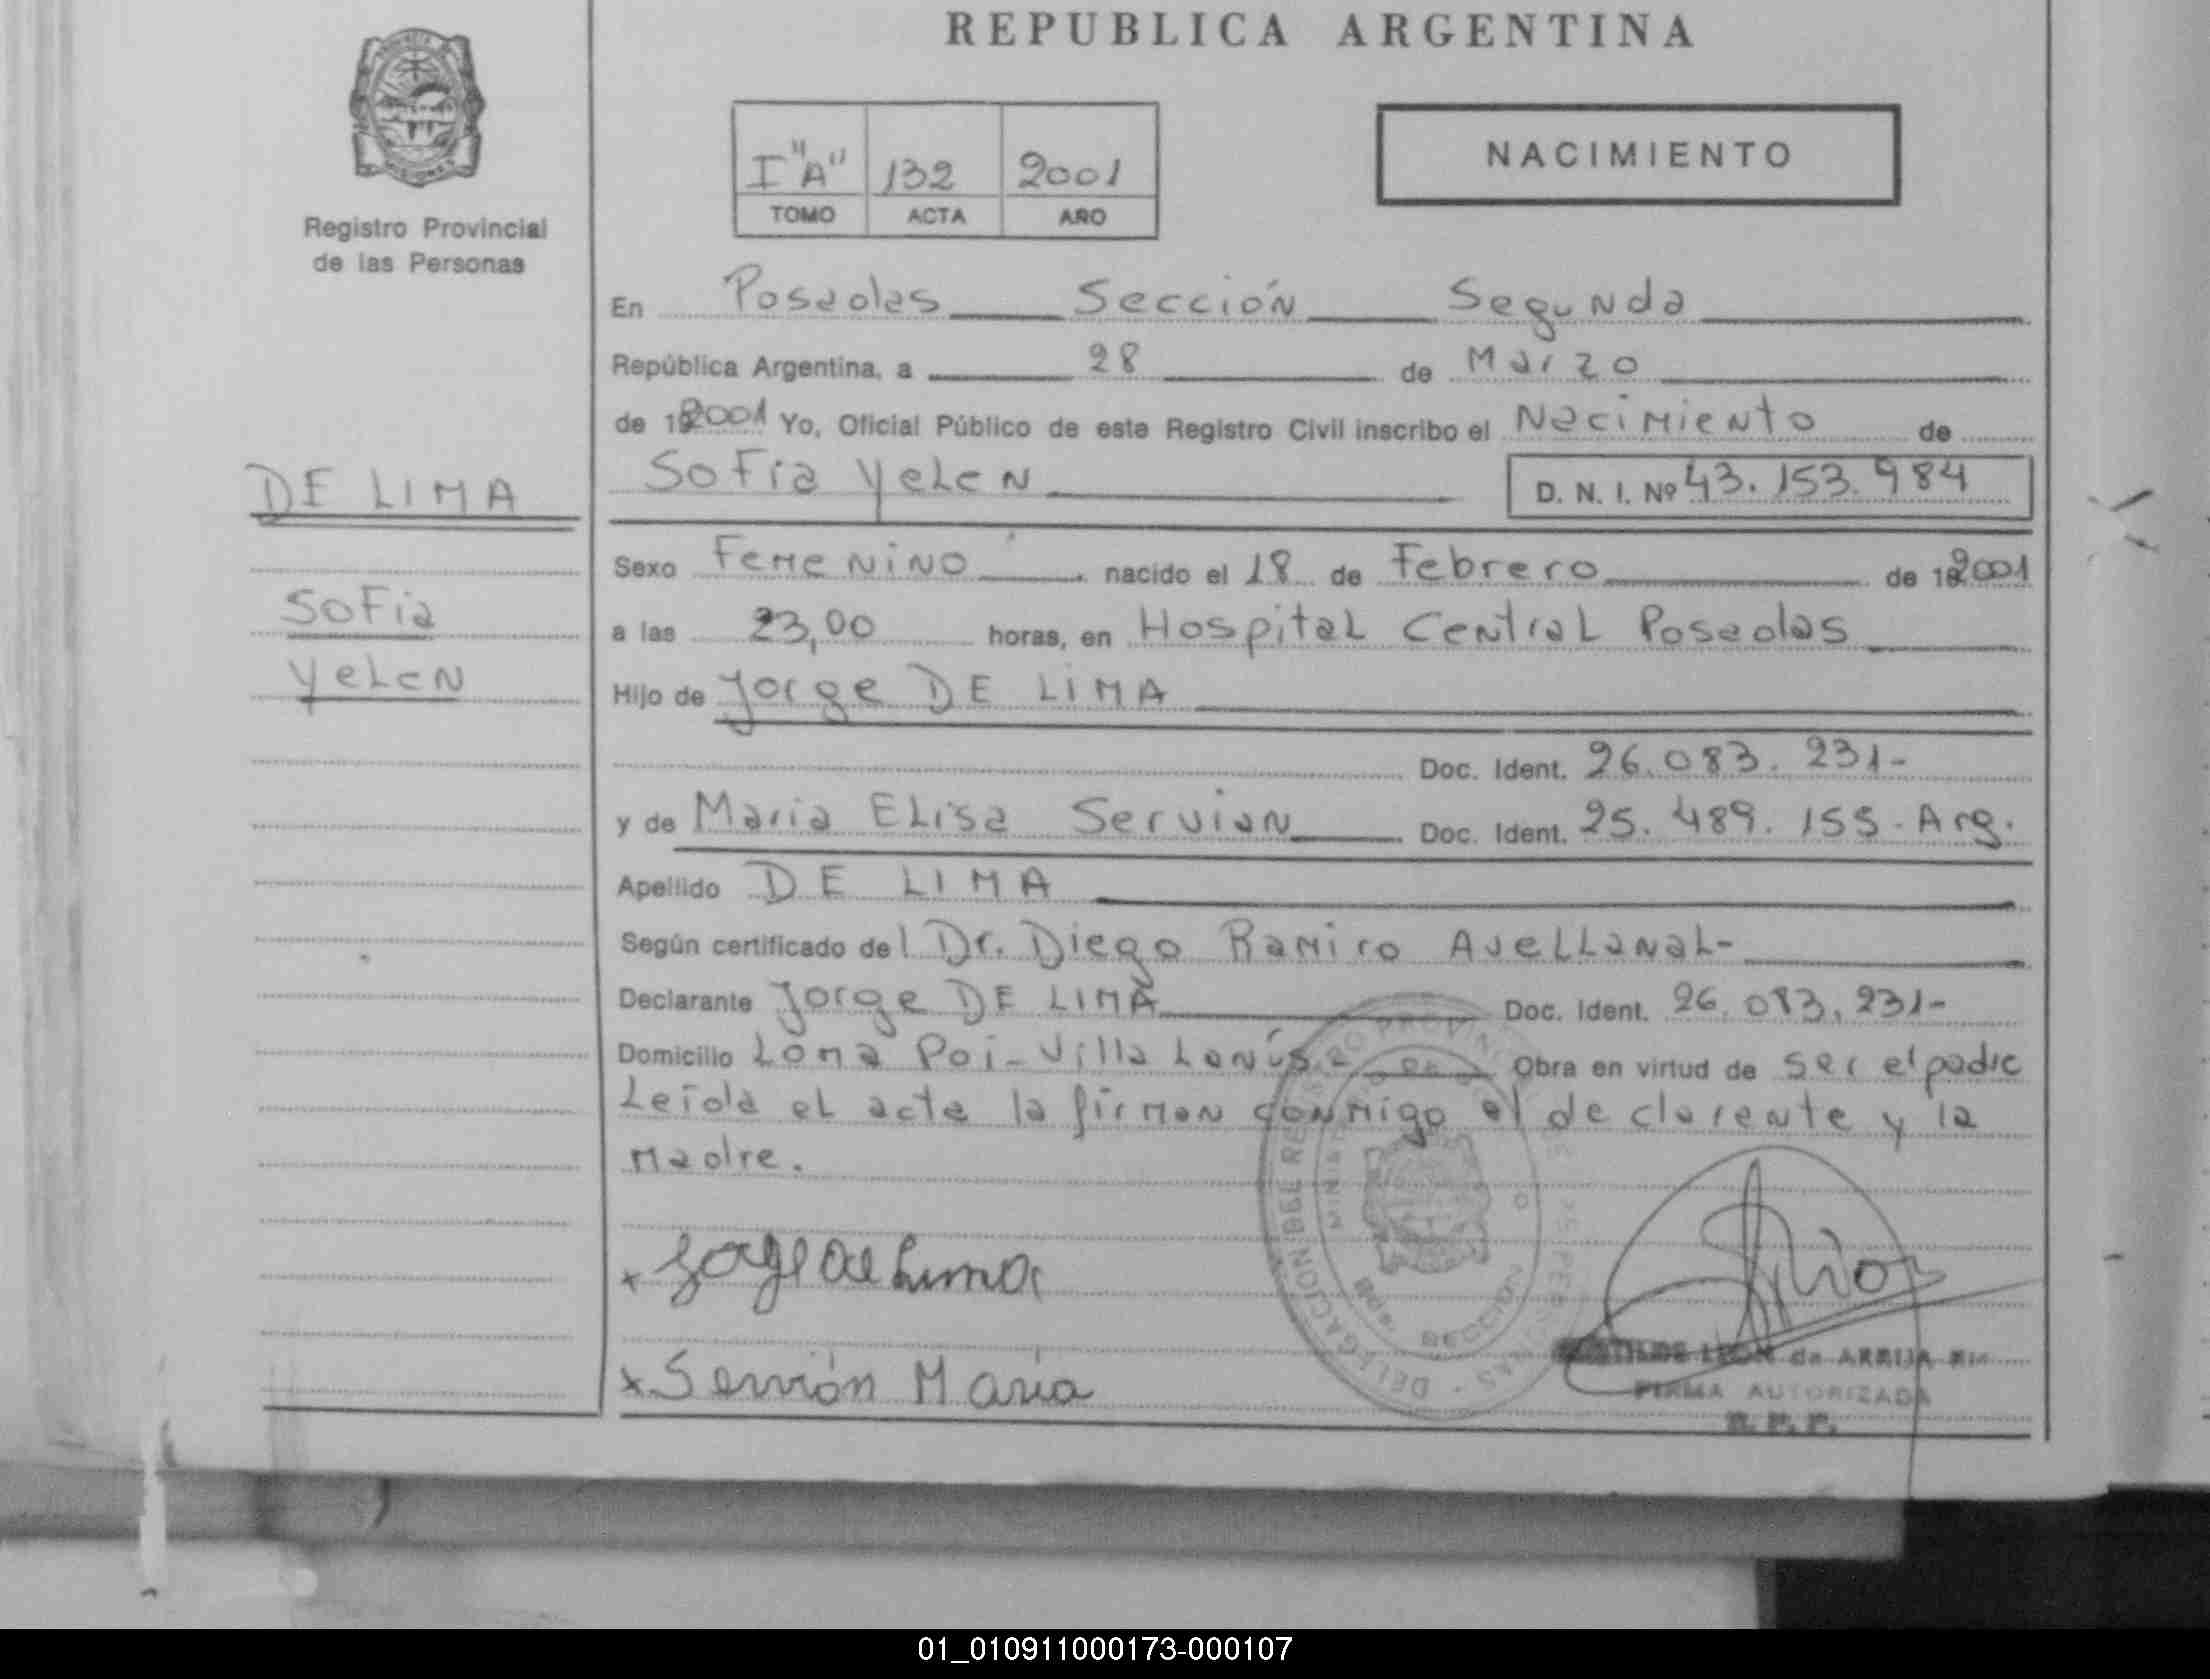 REPUBLICA ARGENTINA
Registro Provincial
de las Personas
I "A" 132 2001
TOMO ACTA AÑO
NACIMIENTO
DE LIMA
SOFia
YeLeN
En Posadas Sección Segunda
República Argentina, a 28 de Marzo
de 2001 Yo, Oficial Público de este Registro Civil inscribo el Nacimiento de
SOFia YeLeN D. N. I. Nº 43.153.984
Sexo Femenino nacido el 18 de Febrero de 2001
a las 23,00 horas, en Hospital Central Posadas
Hijo de Jorge DE LIMA
Doc. Ident. 26.083.231-
y de Maria Elisa Servian Doc. Ident. 25.489.155-Arg.
Apellido DE LIMA
Según certificado del Dr. Diego Ramiro Avellanal-
Declarante Jorge DE LIMA Doc. Ident. 26.083.231-
Domicilio Loma Poi-Villa Lanús Obra en virtud de ser el padre
Leída el acta la firman conmigo el declarante y la
madre.
x Jorge de Lima
x Servión Maria
DELEGACION DEL REGISTRO PROVINCIAL DE LAS PERSONAS
SECCION
LEON de ARRUA
FIRMA AUTORIZADA
R. P. P.
01_010911000173-000107